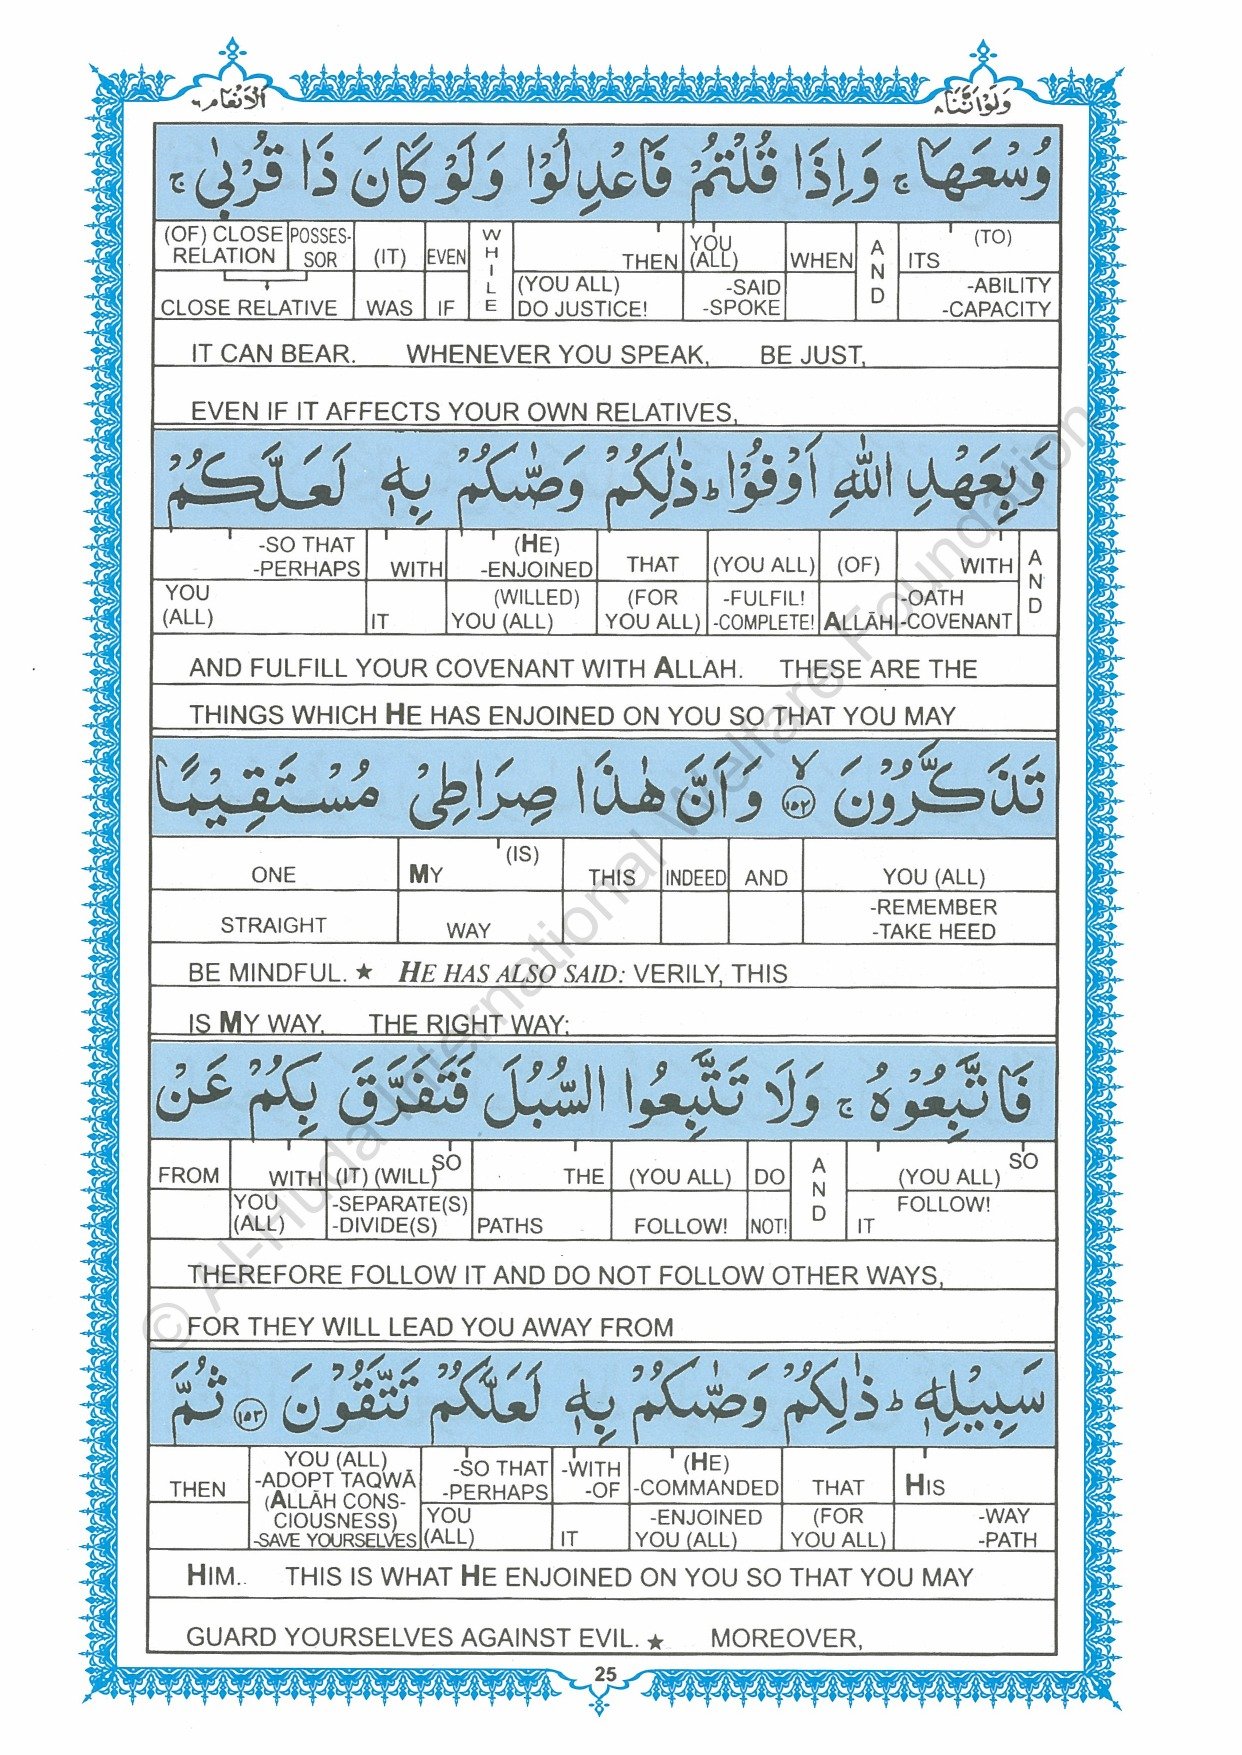 الانعام ٦
ولواننا ٨
وُسْعَهَا ۚ وَاِذَا قُلْتُمْ فَاعْدِلُوْا وَلَوْ كَانَ ذَا قُرْبٰى ۚ
(OF) CLOSE RELATION POSSESSOR (IT) EVEN WHILE THEN YOU (ALL) WHEN AND ITS (TO)
CLOSE RELATIVE WAS IF (YOU ALL) DO JUSTICE! -SAID -SPOKE -ABILITY -CAPACITY
IT CAN BEAR. WHENEVER YOU SPEAK, BE JUST,
EVEN IF IT AFFECTS YOUR OWN RELATIVES,
وَبِعَهْدِ اللّٰهِ اَوْفُوْا ؕ ذٰلِكُمْ وَصّٰىكُمْ بِهٖ لَعَلَّكُمْ
-SO THAT -PERHAPS WITH (HE) -ENJOINED THAT (YOU ALL) (OF) WITH AND
YOU (ALL) IT (WILLED) YOU (ALL) (FOR YOU ALL) -FULFIL! -COMPLETE! ALLĀH -OATH -COVENANT
AND FULFILL YOUR COVENANT WITH ALLAH. THESE ARE THE
THINGS WHICH HE HAS ENJOINED ON YOU SO THAT YOU MAY
تَذَكَّرُوْنَ ۙ ١٥٢ وَاَنَّ هٰذَا صِرَاطِيْ مُسْتَقِيْمًا
ONE MY (IS) THIS INDEED AND YOU (ALL)
STRAIGHT WAY -REMEMBER -TAKE HEED
BE MINDFUL. ★ HE HAS ALSO SAID: VERILY, THIS
IS MY WAY, THE RIGHT WAY;
فَاتَّبِعُوْهُ ۚ وَلَا تَتَّبِعُوا السُّبُلَ فَتَفَرَّقَ بِكُمْ عَنْ
FROM WITH (IT) (WILL) SO THE (YOU ALL) DO AND (YOU ALL) SO
YOU (ALL) -SEPARATE(S) -DIVIDE(S) PATHS FOLLOW! NOT! IT FOLLOW!
THEREFORE FOLLOW IT AND DO NOT FOLLOW OTHER WAYS,
FOR THEY WILL LEAD YOU AWAY FROM
سَبِيْلِهٖ ؕ ذٰلِكُمْ وَصّٰىكُمْ بِهٖ لَعَلَّكُمْ تَتَّقُوْنَ ١٥٣ ثُمَّ
THEN YOU (ALL) -ADOPT TAQWĀ (ALLĀH CONSCIOUSNESS) -SAVE YOURSELVES -SO THAT -PERHAPS -WITH -OF (HE) -COMMANDED THAT HIS
YOU (ALL) IT -ENJOINED YOU (ALL) (FOR YOU ALL) -WAY -PATH
HIM. THIS IS WHAT HE ENJOINED ON YOU SO THAT YOU MAY
GUARD YOURSELVES AGAINST EVIL. ★ MOREOVER,
25
© Al-Huda International Welfare Foundation